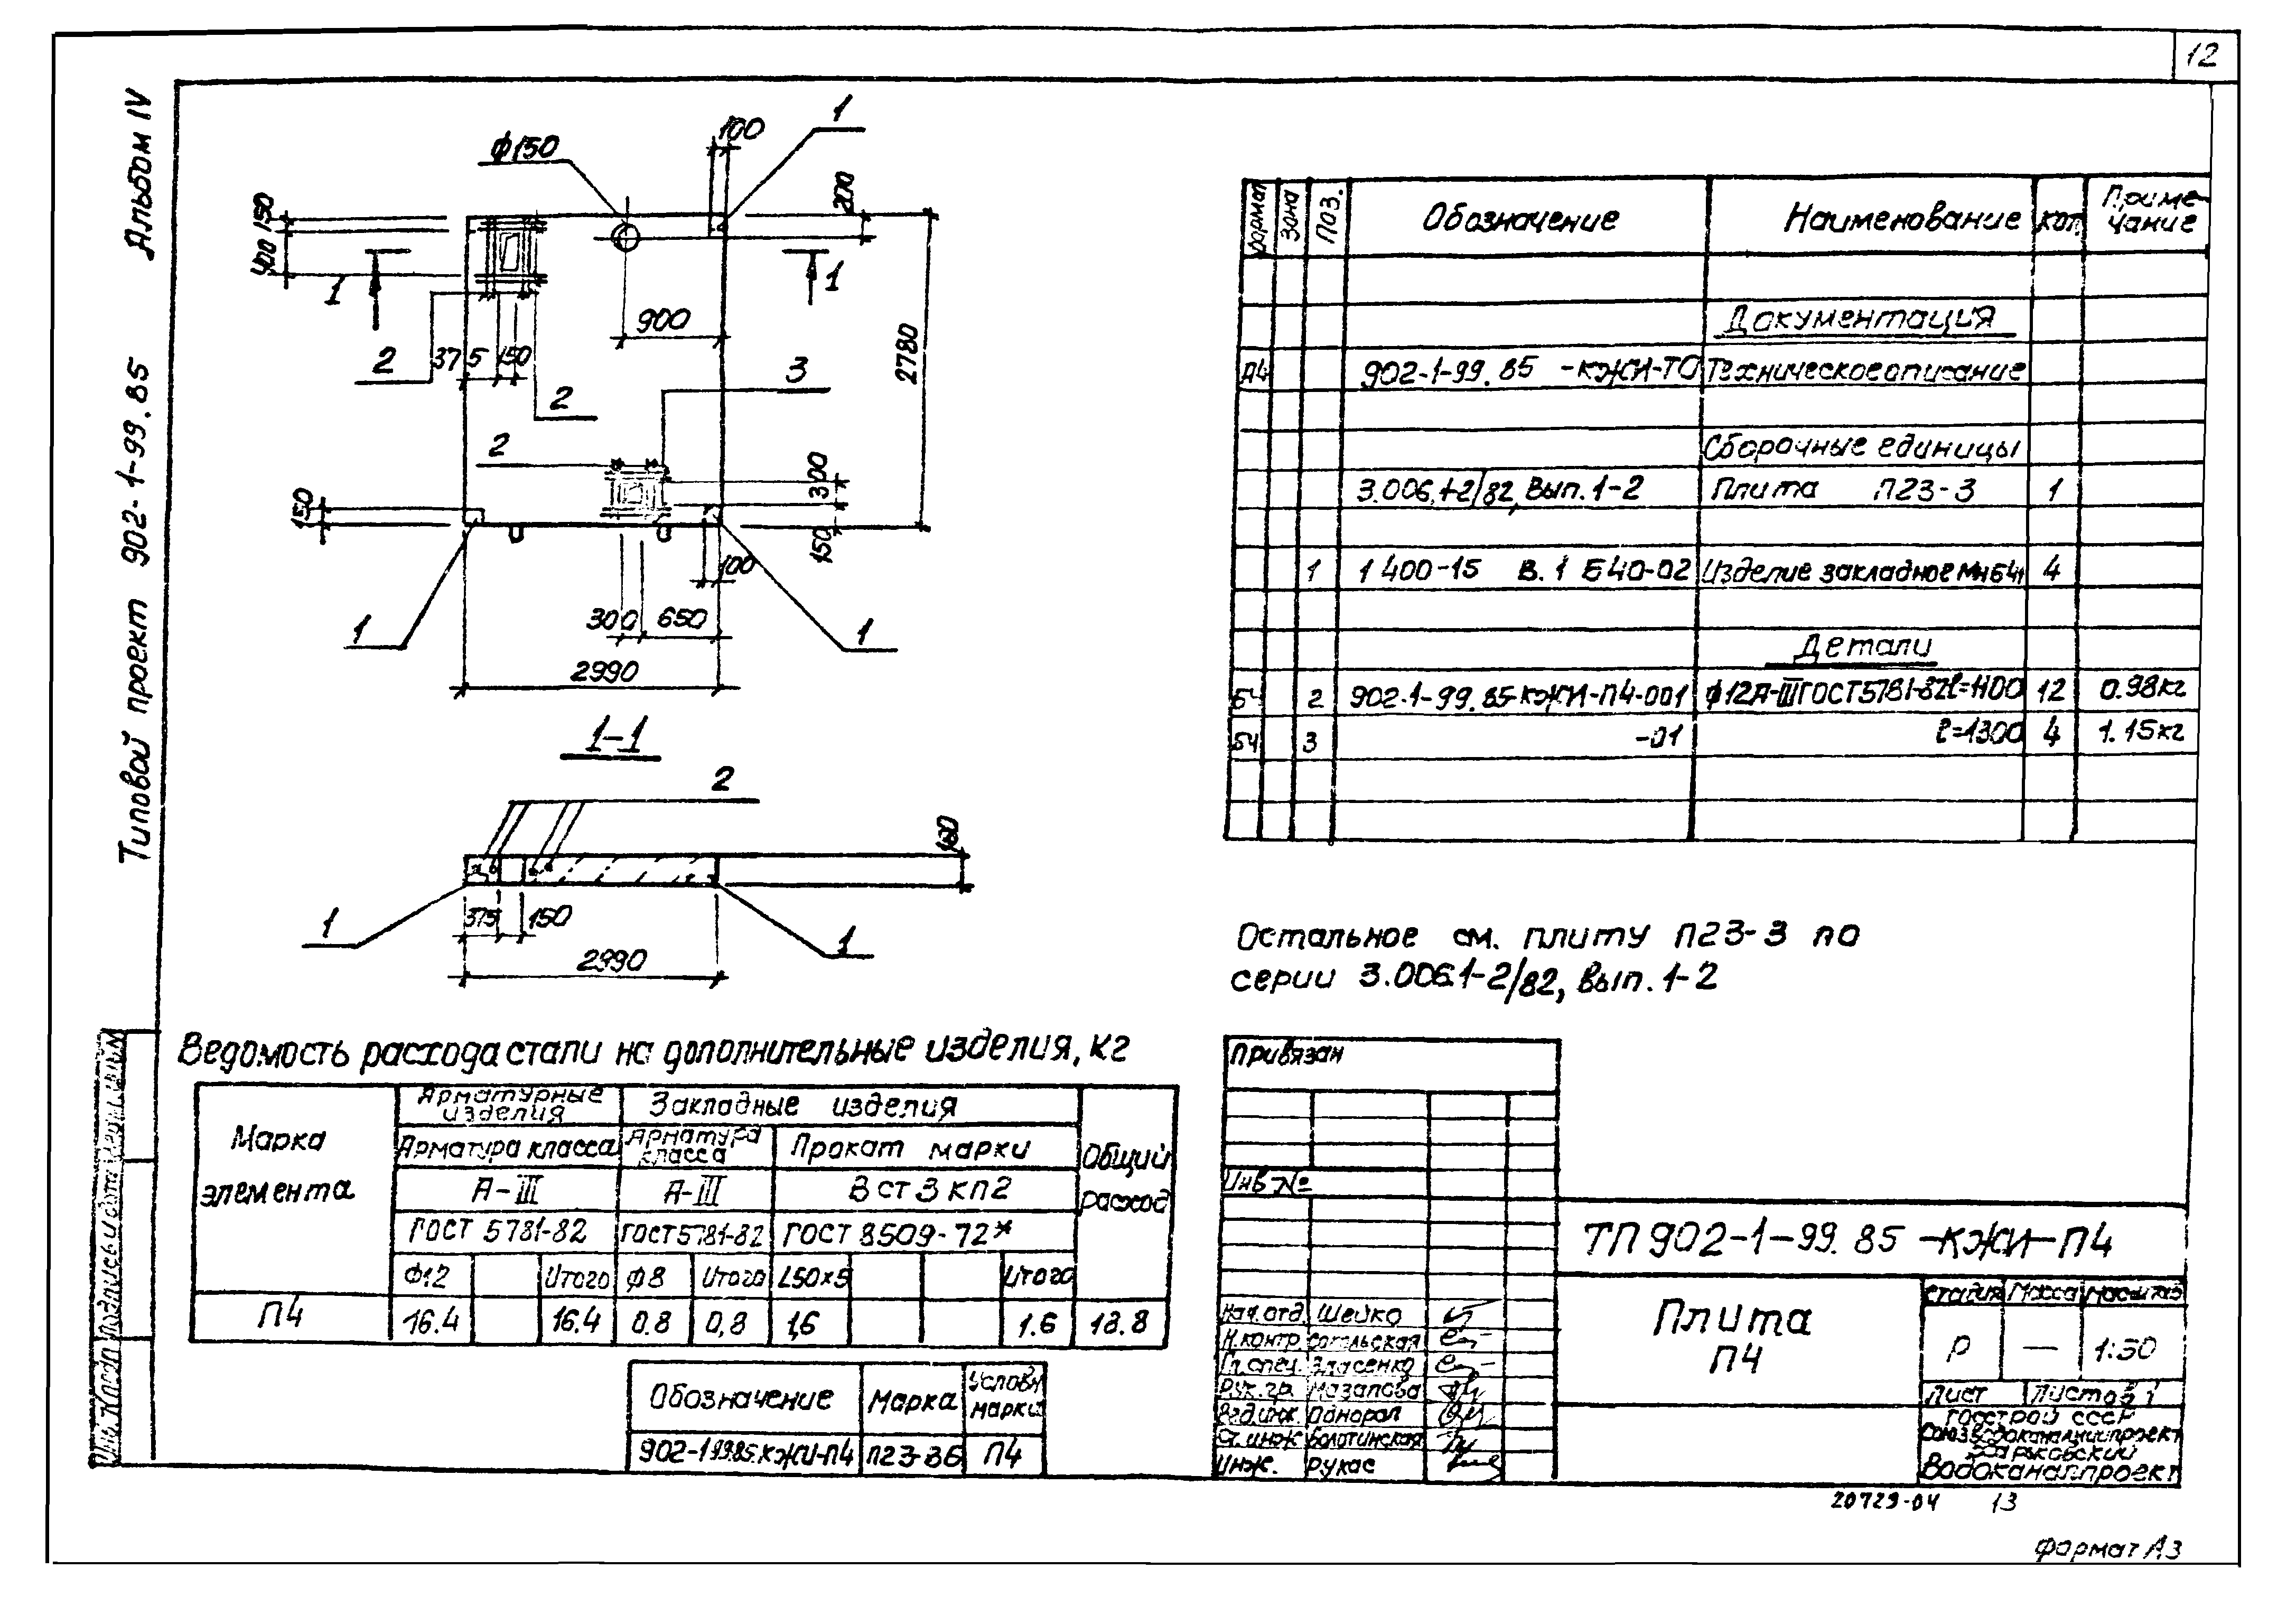 12
Альбом IV
Типовой проект 902-1-99.85
ф150
100
1
200
150
400
1
1
900
2780
2
375
150
3
2
2
300
150
150
100
1
300
650
1
2990
1-1
2
160
1
375
150
1
2990
Формат
Зона
Поз.
Обозначение
Наименование
Кол.
Приме-
чание
Документация
А4 902-1-99.85 -КЖИ-ТО Техническое описание
Сборочные единицы
3.006.1-2/82, Вып. 1-2 Плита П23-3 1
1 1 400-15 В. 1 Б40-02 Изделие закладное 4
Детали
БЧ 2 902-1-99.85-КЖИ-П4-001 ф12А-III ГОСТ 5781-82 ℓ=1100 12 0.98кг
БЧ 3 -01 ℓ=1300 4 1.15кг
Остальное см. плиту П23-3 по
серии 3.006.1-2/82, вып. 1-2
Ведомость расхода стали на дополнительные изделия, кг
Марка
элемента
Арматурные
изделия
Закладные изделия
Общий
расход
Арматура класса
Арматура
класса
Прокат марки
А-III
А-III
В ст 3 кп2
ГОСТ 5781-82
ГОСТ 5781-82
ГОСТ 8509-72*
Ф12 Итого Ф8 Итого L50х5 Итого
П4 16.4 16.4 0.8 0,8 1,6 1.6 18.8
Обозначение
Марка
Условн.
марка
902-1-99.85.КЖИ-П4 П23-3б П4
Привязан
Инв №
Нач. отд. Шейко
Н.контр.
Гл. спец. Власенко
Рук. гр.
Вед.инж. Однорал
Ст. инж. Болотинская
Инж. Рукас
ТП 902-1-99.85 -КЖИ-П4
Плита
П4
Стадия Масса Масштаб
Р — 1:50
Лист Листов 1
Госстрой СССР
Союзводоканалниипроект
Харьковский
Водоканалпроект
Инв. № подл.
Подпись и дата
20729-04 13
Формат А3